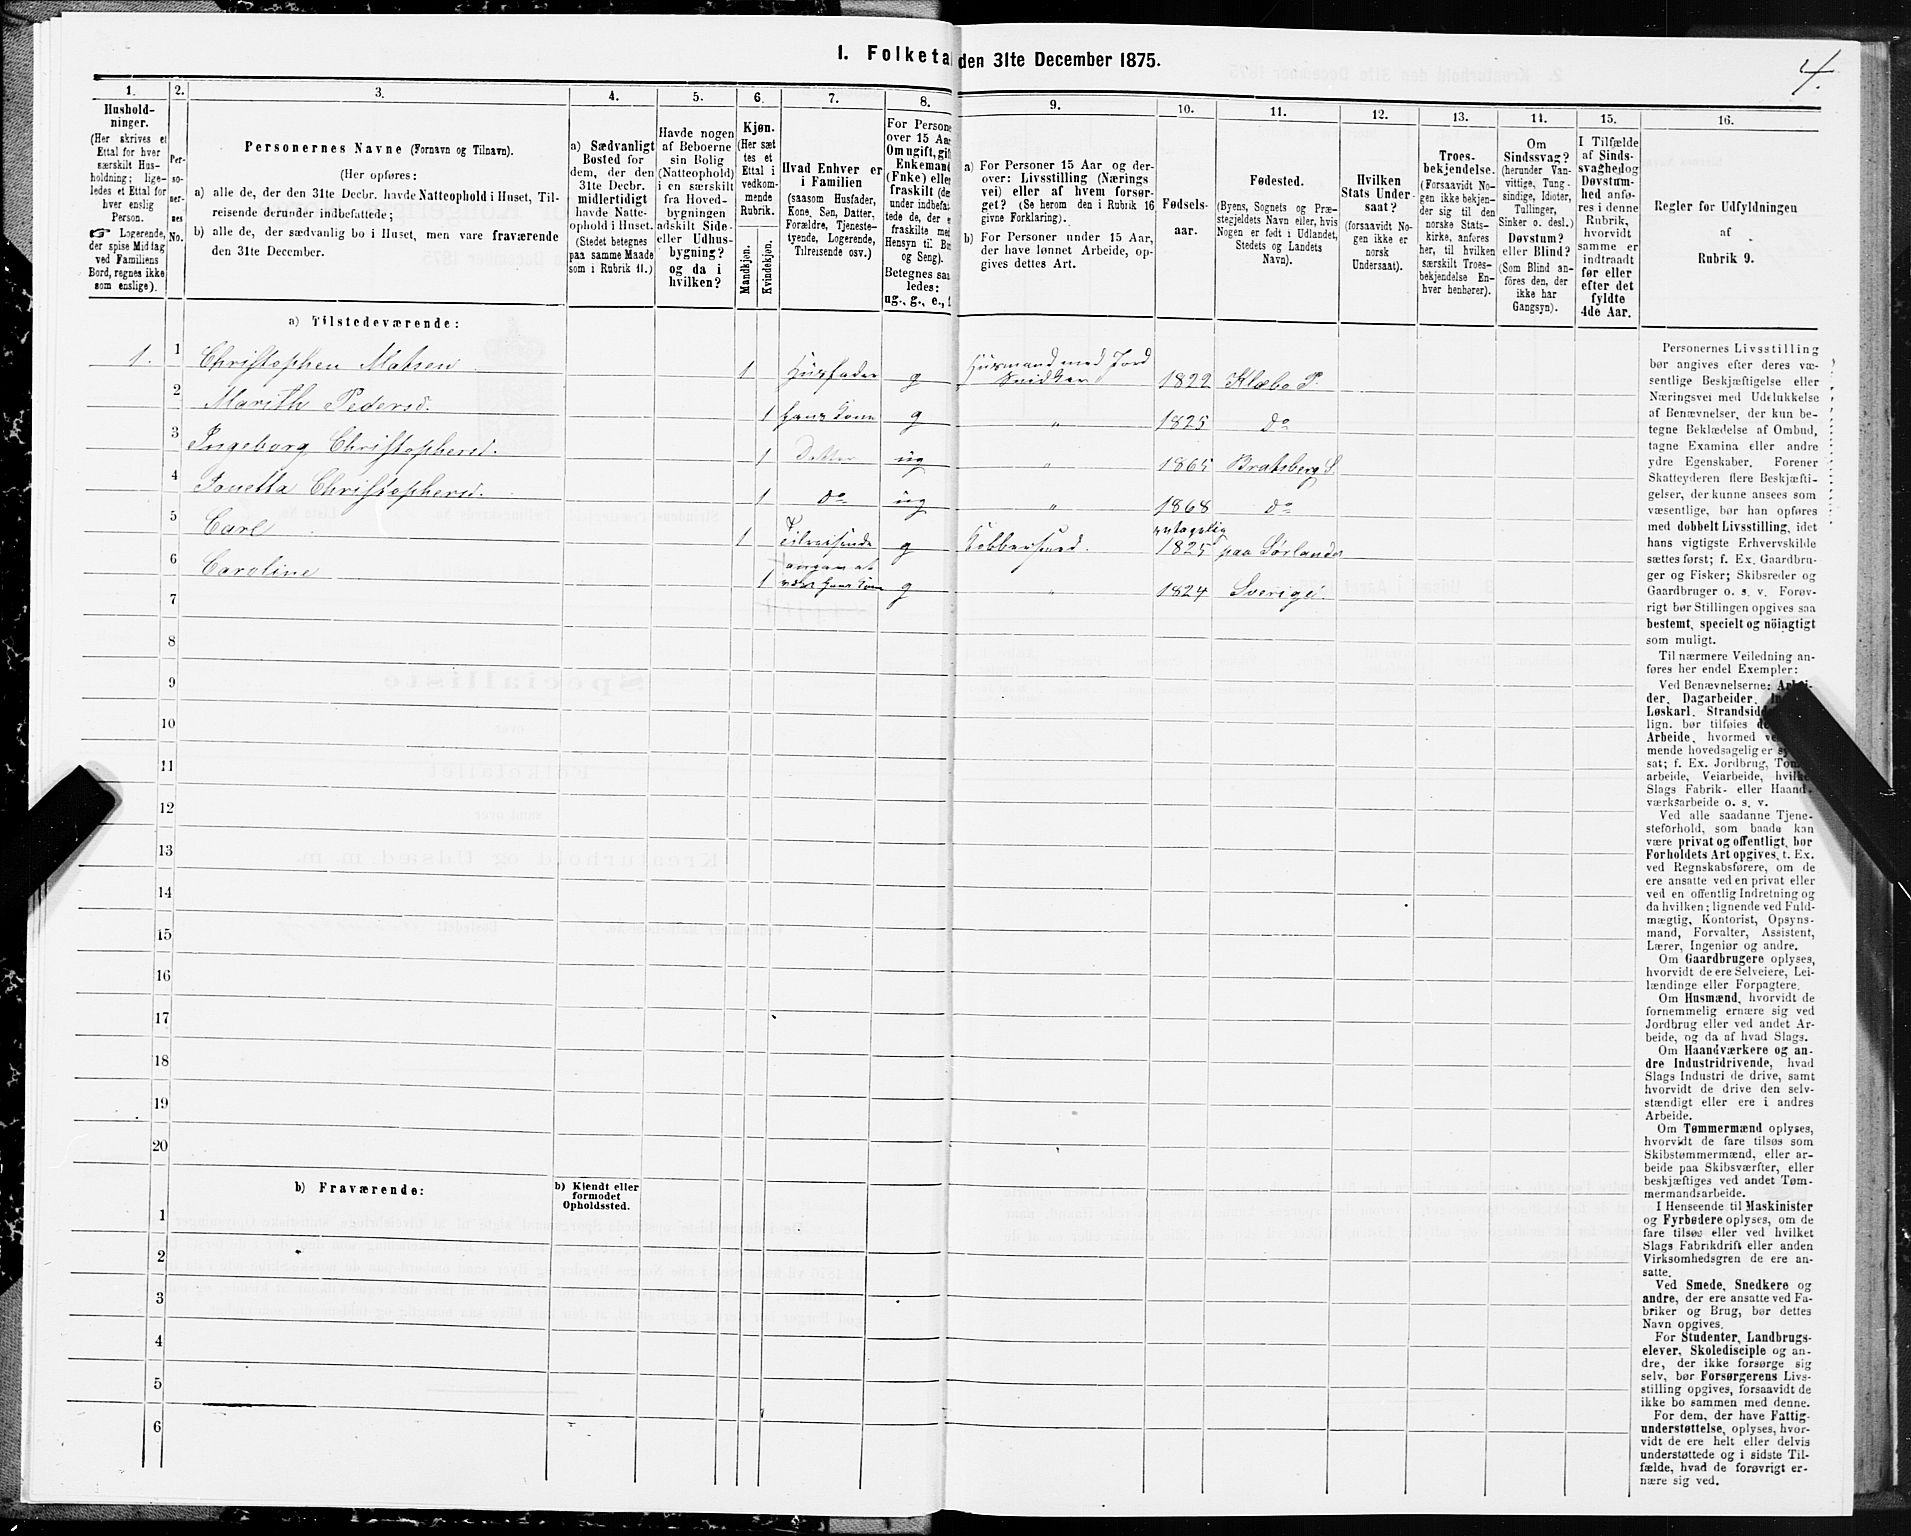 4.
1. Folketal den 31te December 1875.
1. 2. 3. 4. 5. 6. 7. 8. 9. 10. 11. 12. 13. 14. 15. 16.
Hushold-
ninger.
(Her skrives et
Ettal for hver
særskilt Hus-
holdning; lige-
ledes et Ettal for
hver enslig
Person.
☞ Logerende,
der spise Middag
ved Familiens
Bord, regnes ikke
som enslige).
Per-
so-
ner-
nes
No.
Personernes Navne (Fornavn og Tilnavn).
(Her opføres:
a) alle de, der den 31te Decbr. havde Natteophold i Huset, Til-
reisende derunder indbefattede;
b) alle de, der sædvanlig bo i Huset, men vare fraværende
den 31te December.
a) Sædvanligt
Bosted for
dem, der den
31te Decbr.
midlertidigt
havde Natte-
ophold i Huset.
(Stedet betegnes
paa samme Maade
som i Rubrik 11.)
Havde nogen
af Beboerne
sin Bolig
(Natteophold)
i en særskilt
fra Hoved-
bygningen
adskilt Side-
eller Udhus-
bygning?
og da i
hvilken?
Kjøn.
(Her sæt
tes et
Ettal i
vedkom-
mende
Rubrik.
Mandkjøn.
Kvindekjøn.
Hvad Enhver er
i Familien
(saasom Husfader,
Kone, Søn, Datter,
Forældre, Tjeneste-
tyende, Logerende,
Tilreisende osv.)
For Persone
over 15 Aar
Om ugift, gif
Enkemand
(Enke) elle
fraskilt (de
under indbefat
tede de, der e
fraskilte me
Hensyn til Bo
og Seng).
Betegnes saa
ledes:
ug., g., e.,
a) For Personer 15 Aar og der-
over: Livsstilling (Nærings
vei) eller af hvem forsør-
get? (Se herom den i Rubrik 16
givne Forklaring).
b) For Personer under 15 Aar,
der have lønnet Arbeide, op-
gives dettes Art.
Fødsels-
aar.
Fødested.
(Byens, Sognets og Præ-
stegjeldets Navn eller, hvis
Nogen er født i Udlandet,
Stedets og Landets
Navn).
Hvilken
Stats Under-
saat?
(forsaavidt No-
gen ikke er
norsk
Undersaat).
Troes-
bekjendelse.
(Forsaavidt No-
gen ikke bekjen-
der sig til den
norske Stats-
kirke, anføres
her, til hvilken
særskilt Troes-
bekjendelse En-
hver henhører).
Om
Sindssvag?
(herunder Van-
vittige, Tung-
sindige, Idioter,
Tullinger,
Sinker o. desl.)
Døvstum?
eller Blind?
(Som Blind an-
føres den, der
ikke har
Gangsyn).
I Tilfælde
af Sinds-
svaghed og
Døvstum-
hed anfø-
res i denne
Rubrik,
hvorvidt
samme er
indtraadt
før eller
efter det
fyldte
4de Aar.
Regler for Udfyldningen
af
Rubrik 9.
a) Tilstedeværende:
1. 1 Christophen Matsen 1 Husfader g Husmand med Jord
Snidker 1822 Klæbo P.
2 Marith Pedersd. 1 hans Kone g " 1825 do
3 Ingeborg Christophersd. 1 Datter ug " 1865 Bratsberg S
4 Jonetta Christophersd. 1 do ug " 1868 do
5 Carl 1 Tilreisende g Kobbersmed. antagelig
1825 paa Sørlandet
6 Caroline 1 angav at
være hans Kone g " 1824 Sverige.
7
8
9
10
11
12
13
14
15
16
17
18
19
20
b) Fraværende:
b) Kjendt eller
formodet
Opholdssted.
1
2
3
4
5
6
Personernes Livsstilling
bør angives efter deres væ-
sentlige Beskjæftigelse eller
Næringsvei med Udelukkelse
af Benævnelser, der kun be-
tegne Beklædelse af Ombud,
tagne Examina eller andre
ydre Egenskaber. Forener
Skatteyderen flere Beskjæfti-
gelser, der kunne ansees som
væsentlige, bør han opføres
med dobbelt Livsstilling, idet
hans vigtigste Erhvervskilde
sættes først; f. Ex. Gaardbru-
ger og Fisker; Skibsreder og
Gaardbruger o. s. v. Forøv-
rigt bør Stillingen opgives saa
bestemt, specielt og nöiagtigt
som muligt.
Til nærmere Veiledning an-
føres her endel Exempler:
Ved Benævnelserne: Arbei-
der, Dagarbeider,
Løskarl, Strandsid
lign. bør tilføies
Arbeide, hvormed
mende hovedsagelig er
sat; f. Ex. Jordbrug, Tøm
arbeide, Veiarbeide, hvilke
Slags Fabrik- eller Haand-
værksarbeide o. s. v.
Ved alle saadanne Tjene-
steforhold, som baade kan
være privat og offentligt, bør
Forholdets Art opgives, t. Ex.
ved Regnskabsførere, om de
ere ansatte ved en privat eller
ved en offentlig Indretning og
da hvilken; lignende ved Fuld-
mægtig, Kontorist, Opsyns-
mand, Forvalter, Assistent,
Lærer, Ingeniør og andre.
Om Gaardbrugere oplyses,
hvorvidt de ere Selveiere, Lei-
lændinge eller Forpagtere.
Om Husmænd, hvorvidt de
fornemmelig ernære sig ved
Jordbrug eller ved andet Ar-
beide, og da af hvad Slags.
Om Haandværkere og an-
dre Industridrivende, hvad
Slags Industri de drive, samt
hvorvidt de drive den selv-
stændigt eller ere i andres
Arbeide.
Om Tømmermænd oplyses,
hvorvidt de fare tilsøs som
Skibstømmermænd, eller ar-
beide paa Skibsværfter, eller
beskjæftiges ved andet Tøm-
mermandsarbeide.
I Henseende til Maskinister
og Fyrbødere oplyses, om de
fare tilsøs eller ved hvilket
Slags Fabrikdrift eller anden
Virksomhedsgren de ere an-
satte.
Ved Smede, Snedkere og
andre, der ere ansatte ved Fa-
briker og Brug, bør dettes
Navn opgives.
For Studenter, Landbrugs-
elever, Skoledisciple og an-
dre, der ikke forsørge sig
selv, bør Forsørgerens Livs-
stilling opgives, forsaavidt de
ikke bo sammen med denne.
For dem, der have Fattig-
understøttelse, oplyses, hvor-
vidt de ere helt eller delvis
understøttede og i sidste Til-
fælde, hvad de forøvrigt er-
nære sig ved.